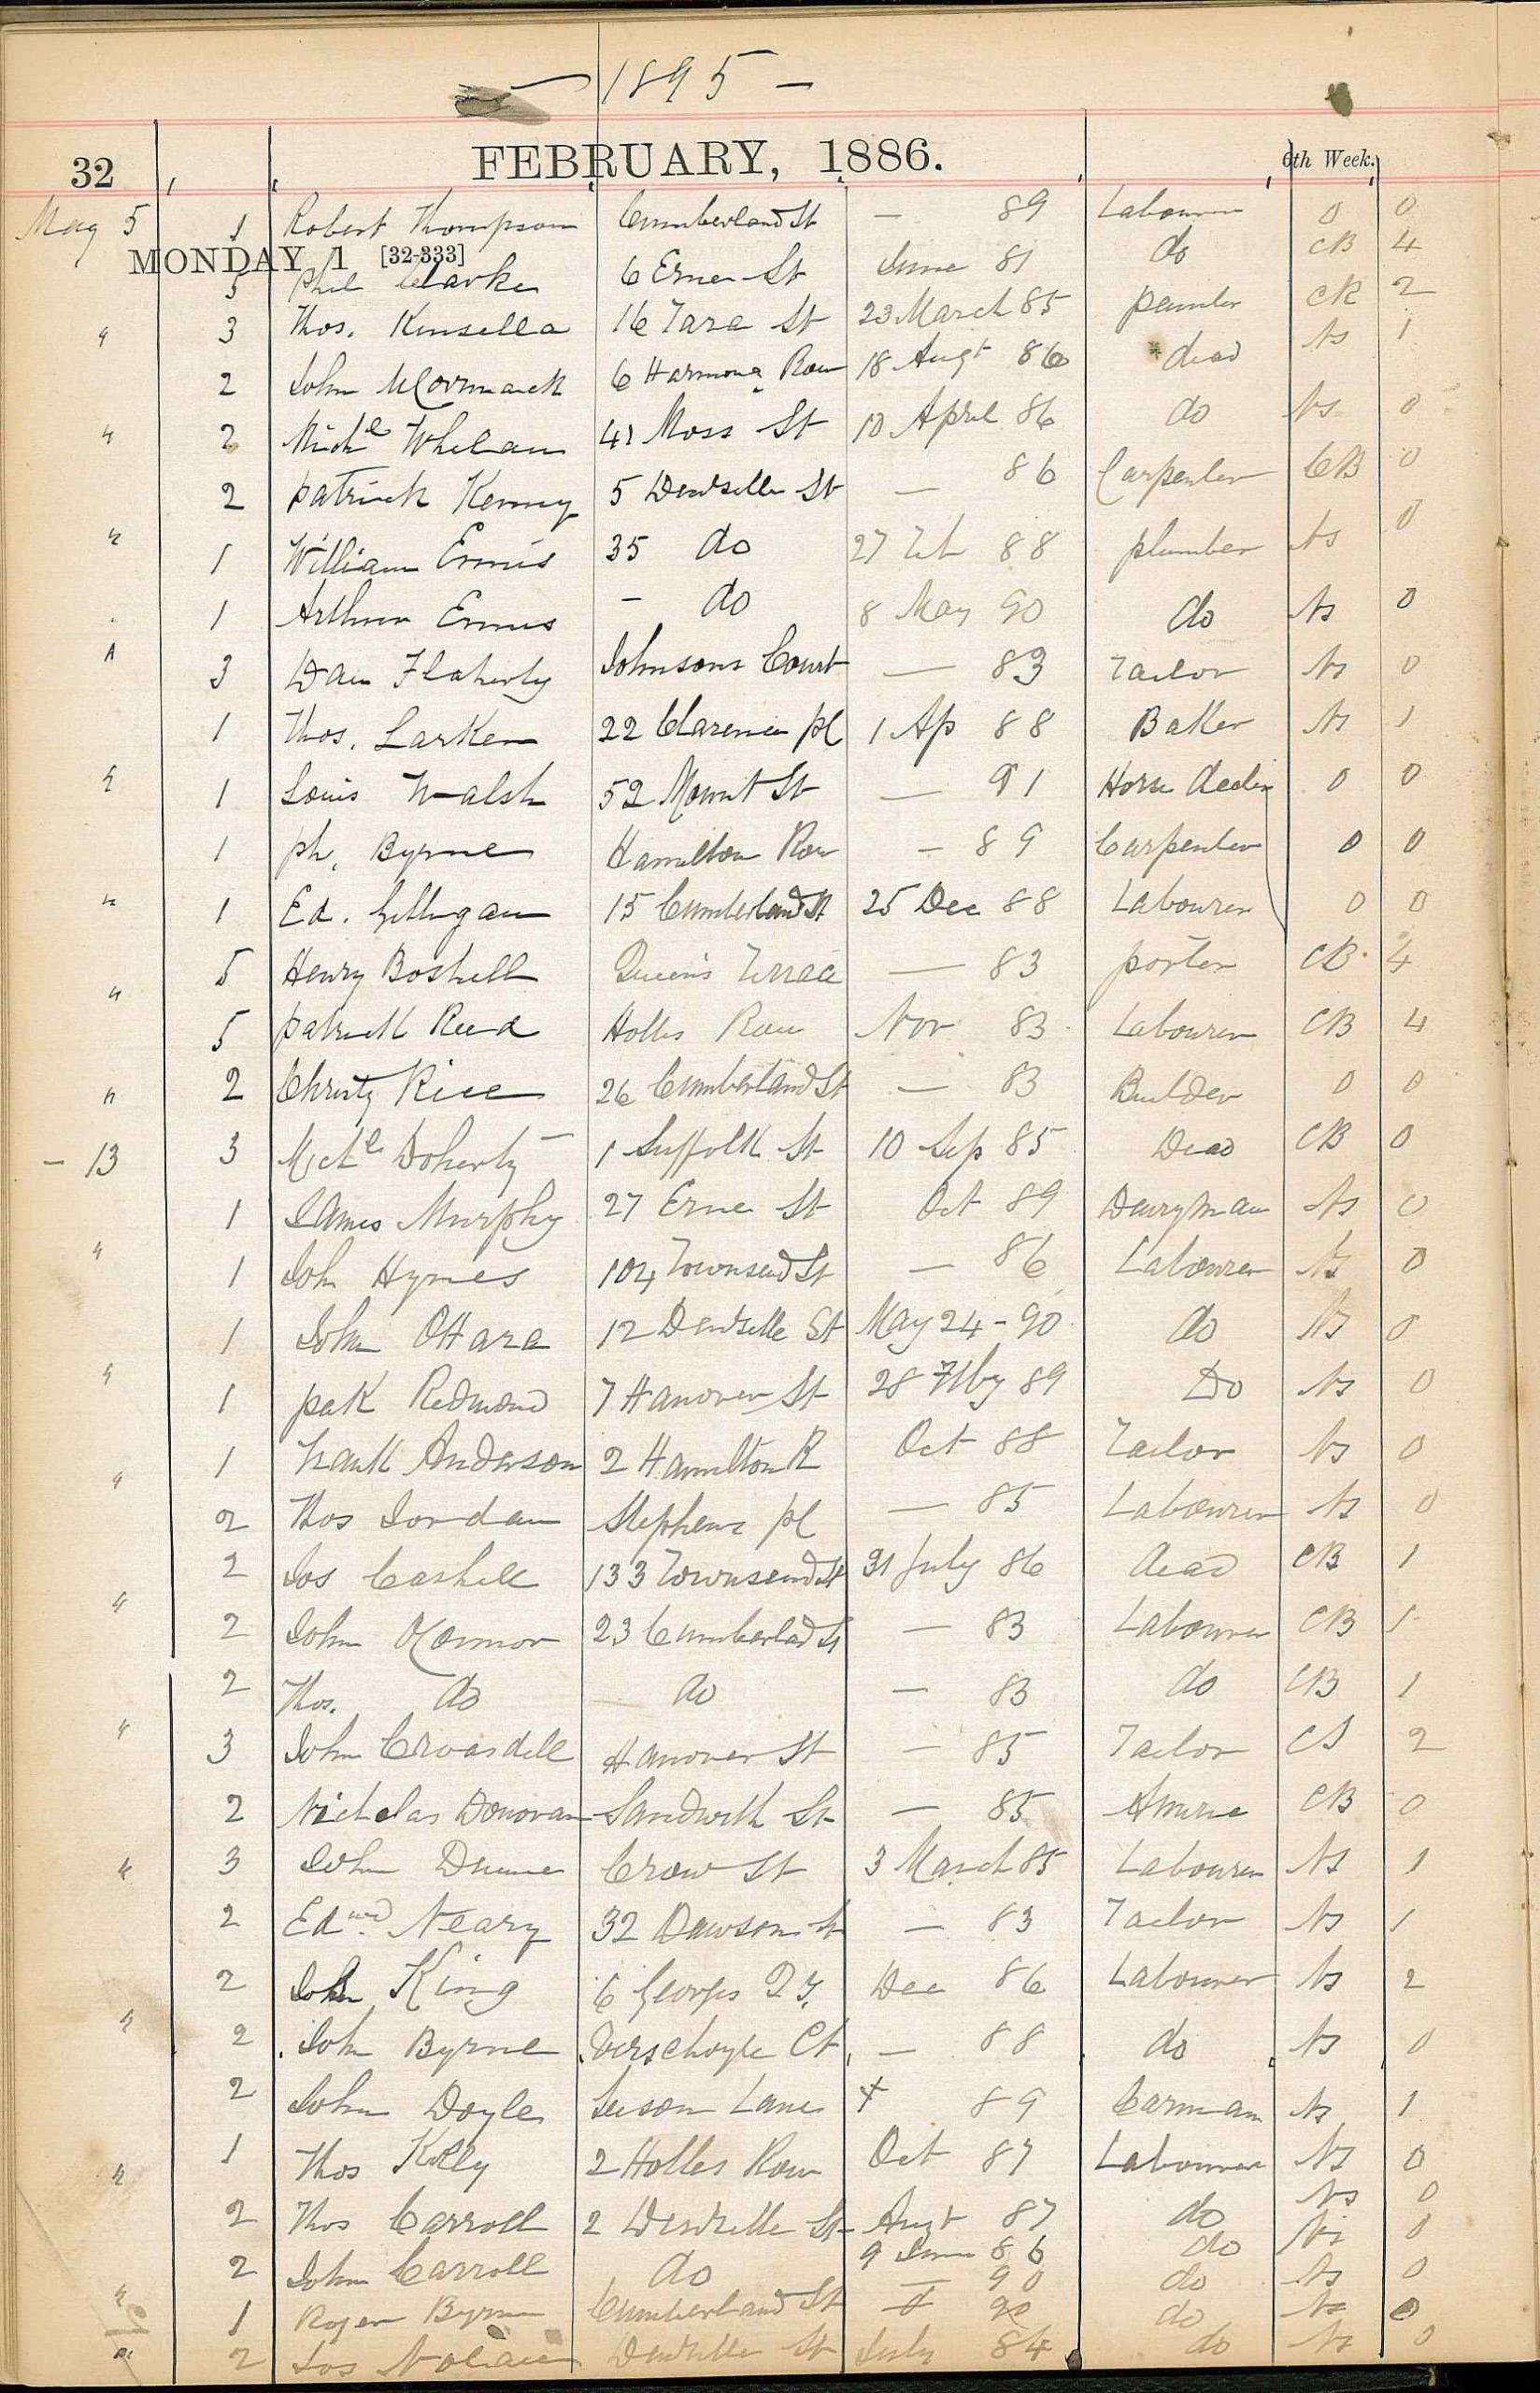 — 1895 —
32 FEBRUARY, 1886. 6th Week.
May 5 1 Robert Thompson Cumberland St — 89 Labourer 0 0
MONDAY 1 [32-333]
5 Phil Clarke 6 Erne St June 81 do CB 4
" 3 Thos. Kinsella 16 Tara St 23 March 85 painter CB 2
2 John McCormack 6 Harmony Row 18 Augt 86 dead NS 1
" 2 Michl Whelan 41 Moss St 10 April 86 do NS 0
2 Patrick Kenny 5 Denzille St — 86 Carpenter CB 0
" 1 William Ennis 35 do 27 Feb 88 plumber NS 0
1 Arthur Ennis — do 8 May 90 do NS 0
" 3 Dan Flaherty Johnsons Court — 83 Tailor NS 0
1 Thos. Larken 22 Clarence pl 1 Ap 88 Baker NS 1
" 1 Louis Walsh 52 Mount St — 91 Horse dealer 0 0
1 ph. Byrne Hamilton Row — 89 Carpenter 0 0
" 1 Ed. Gilligan 15 Cumberland St 25 Dec 88 Labourer 0 0
5 Henry Boshell Queen's Terrace — 83 porter CB. 4
" 5 patrick Reed Holles Row Nov 83 Labourer CB 4
" 2 Christy Rice 26 Cumberland St — 83 Builder 0 0
– 13 3 Michl Doherty 1 Suffolk St 10 Sep 85 Dead CB 0
1 James Murphy 27 Erne St Oct 89 Dairyman NS 0
" 1 Joh Hynes 104 Townsend St — 86 Labourer NS 0
1 John OHara 12 Denzille St May 24 – 90 do NS 0
" 1 pak Redmond 7 Hanover St 28 Feby 89 Do NS 0
1 Frank Anderson 2 Hamilton R Oct 88 Tailor NS 0
" 2 Thos Jordan Stephens pl — 85 Labourer NS 0
2 Jos Cashell 133 Townsend St 31 July 86 dead CB 1
" 2 John OConnor 23 Cumberlad St — 83 Labourer CB 1
2 Thos. do do — 83 do CB 1
" 3 John Croasdell Hanover St — 85 Tailor CS 2
2 Nicholas Donovan Sandwith St — 85 CB 0
" 3 John Dunne Crow St 3 March 85 Labourer NS 1
2 Edwd. Neary 32 Dawson St — 83 Tailor NS 1
2 John King 6 Georges Dec 86 Labourer NS 2
" 2 John Byrne Verschoyle Ct — 88 do NS 0
2 John Doyle Leeson Lane 89 Carman NS 1
" 1 Thos Kelly 2 Holles Row Oct 87 Labourer NS 0
2 Thos Carroll 2 Denzille St Augt 87 do NS 0
2 John Carroll do 9 June 86 do NS 0
— 90 do NS 0
" 1 Roger Byrne Cumberland St 90 do NS 0
2 Jos Nolan Denzille St July 84 do NS 0